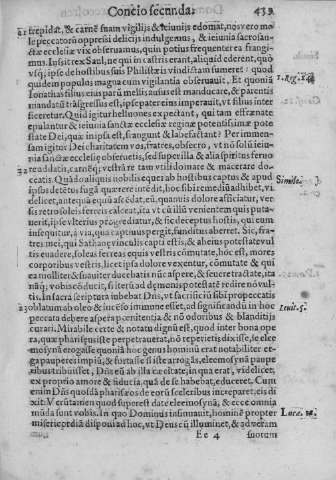 Concio secunda. 439
trepidæ, & carnē suam vigilijs & ieiunijs edomāt, nos vero mo
le peccatorū oppressi delicijs indulgemus, & ieiunia sacrosan-
ctæ ecclesiæ vix obseruamus, quin potius frequenter ea frangi
mus. Iussit rex Saul, ne qui in castris erant, aliquid ederent, quo
vsq; ipse de hostibus suis Philistæis vindictam sumeret: quod
quidem populus magna cum vigilantia obseruauit. Et quoniā
Ionathas filius eius parū mellis ausus est manducare, & parentis
mandatū trāsgressus est, ipse pater eius imperauit, vt filius inter
ficeretur. Quid igitur helluones expectant, qui tam effrænate
epulantur & ieiunia sanctæ ecclesiæ reginæ potentissimæ pote
state Dei, quæ ipsis est, frangunt & labefactant? Per immen-
sam igitur Dei charitatem vos, fratres, obsecro, vt nō solū ieiu-
nia sanctæ ecclesiæ obseruetis, sed supercilia & alia spiritus feruo
re addatis, carnēq; vestrā re tam vtili domare & macerare do-
ceatis. Quādo aliquis nobilis equer ab hostibus captus & apud
ipsos detētus fugā quærere intēdit, hoc sibi remediū adhibet, vi
delicet, antequā equū ascēdat, eū, quantuis dolore afficiatur, ver
sis retro soleis ferreis calceat, ita vt cū illū venientem quis puta-
uerit, ipse vlterius progrediatur, & sic deceptus hostis, qui eum
insequitur, à via, qua captiuus pergit, funditus aberret. Sic, fra-
tres mei, qui Sathanę vinculis capti estis, & ab eius potestate vul
tis euadere, soleas ferreas equis vestris cōmutate, hoc est, mores
corporibus vestris, licet ipsi à dolore vexentur, cōmutate & qui
ea molliter & suauiter ducebatis nūc aspere, & seuere tractate, ita
nāq; vobis cōducit, si iterū ad dęmonis potestatē redire nō vul-
tis. In sacra scriptura iubebat Dñs, vt sacrificiū sibi pro peccatis
oblatum ab oleo & incēso immune esset, ad significandū in hoc
peccata debere aspera pœnitentia & nō odoribus & blanditijs
curari. Mirabile certe & notatu dignū est, quod inter bona ope
ra, quæ pharisęus iste perpetrauerat, nō repetiuit dixisse, se elee
mosynā erogasse quoniā hoc genus hominū erat notabiliter er-
ga pauperes impiū, & fortasse si iste arrogās, eleemosynā paupe
ribus tribuisset, Dñs eū ab illa cæcitate, in qua erat, videlicet,
ex proprio amore & fiducia, quā de se habebat, educeret. Cum
enim Dñs quosdā pharisæos de eorū sceleribus increparet, eis di
xit: Verūtamen quod superest date eleemosynā, & ecce omnia
mūda sunt vobis. In quo Dominus insinuauit, hominē propter
misericordiā disponi ad hoc, vt Deus eū illuminet, & ad veram
Ee 4 suorum
1. Reg. 14.
Simile.
Leuit. 5.
Luc. 11.